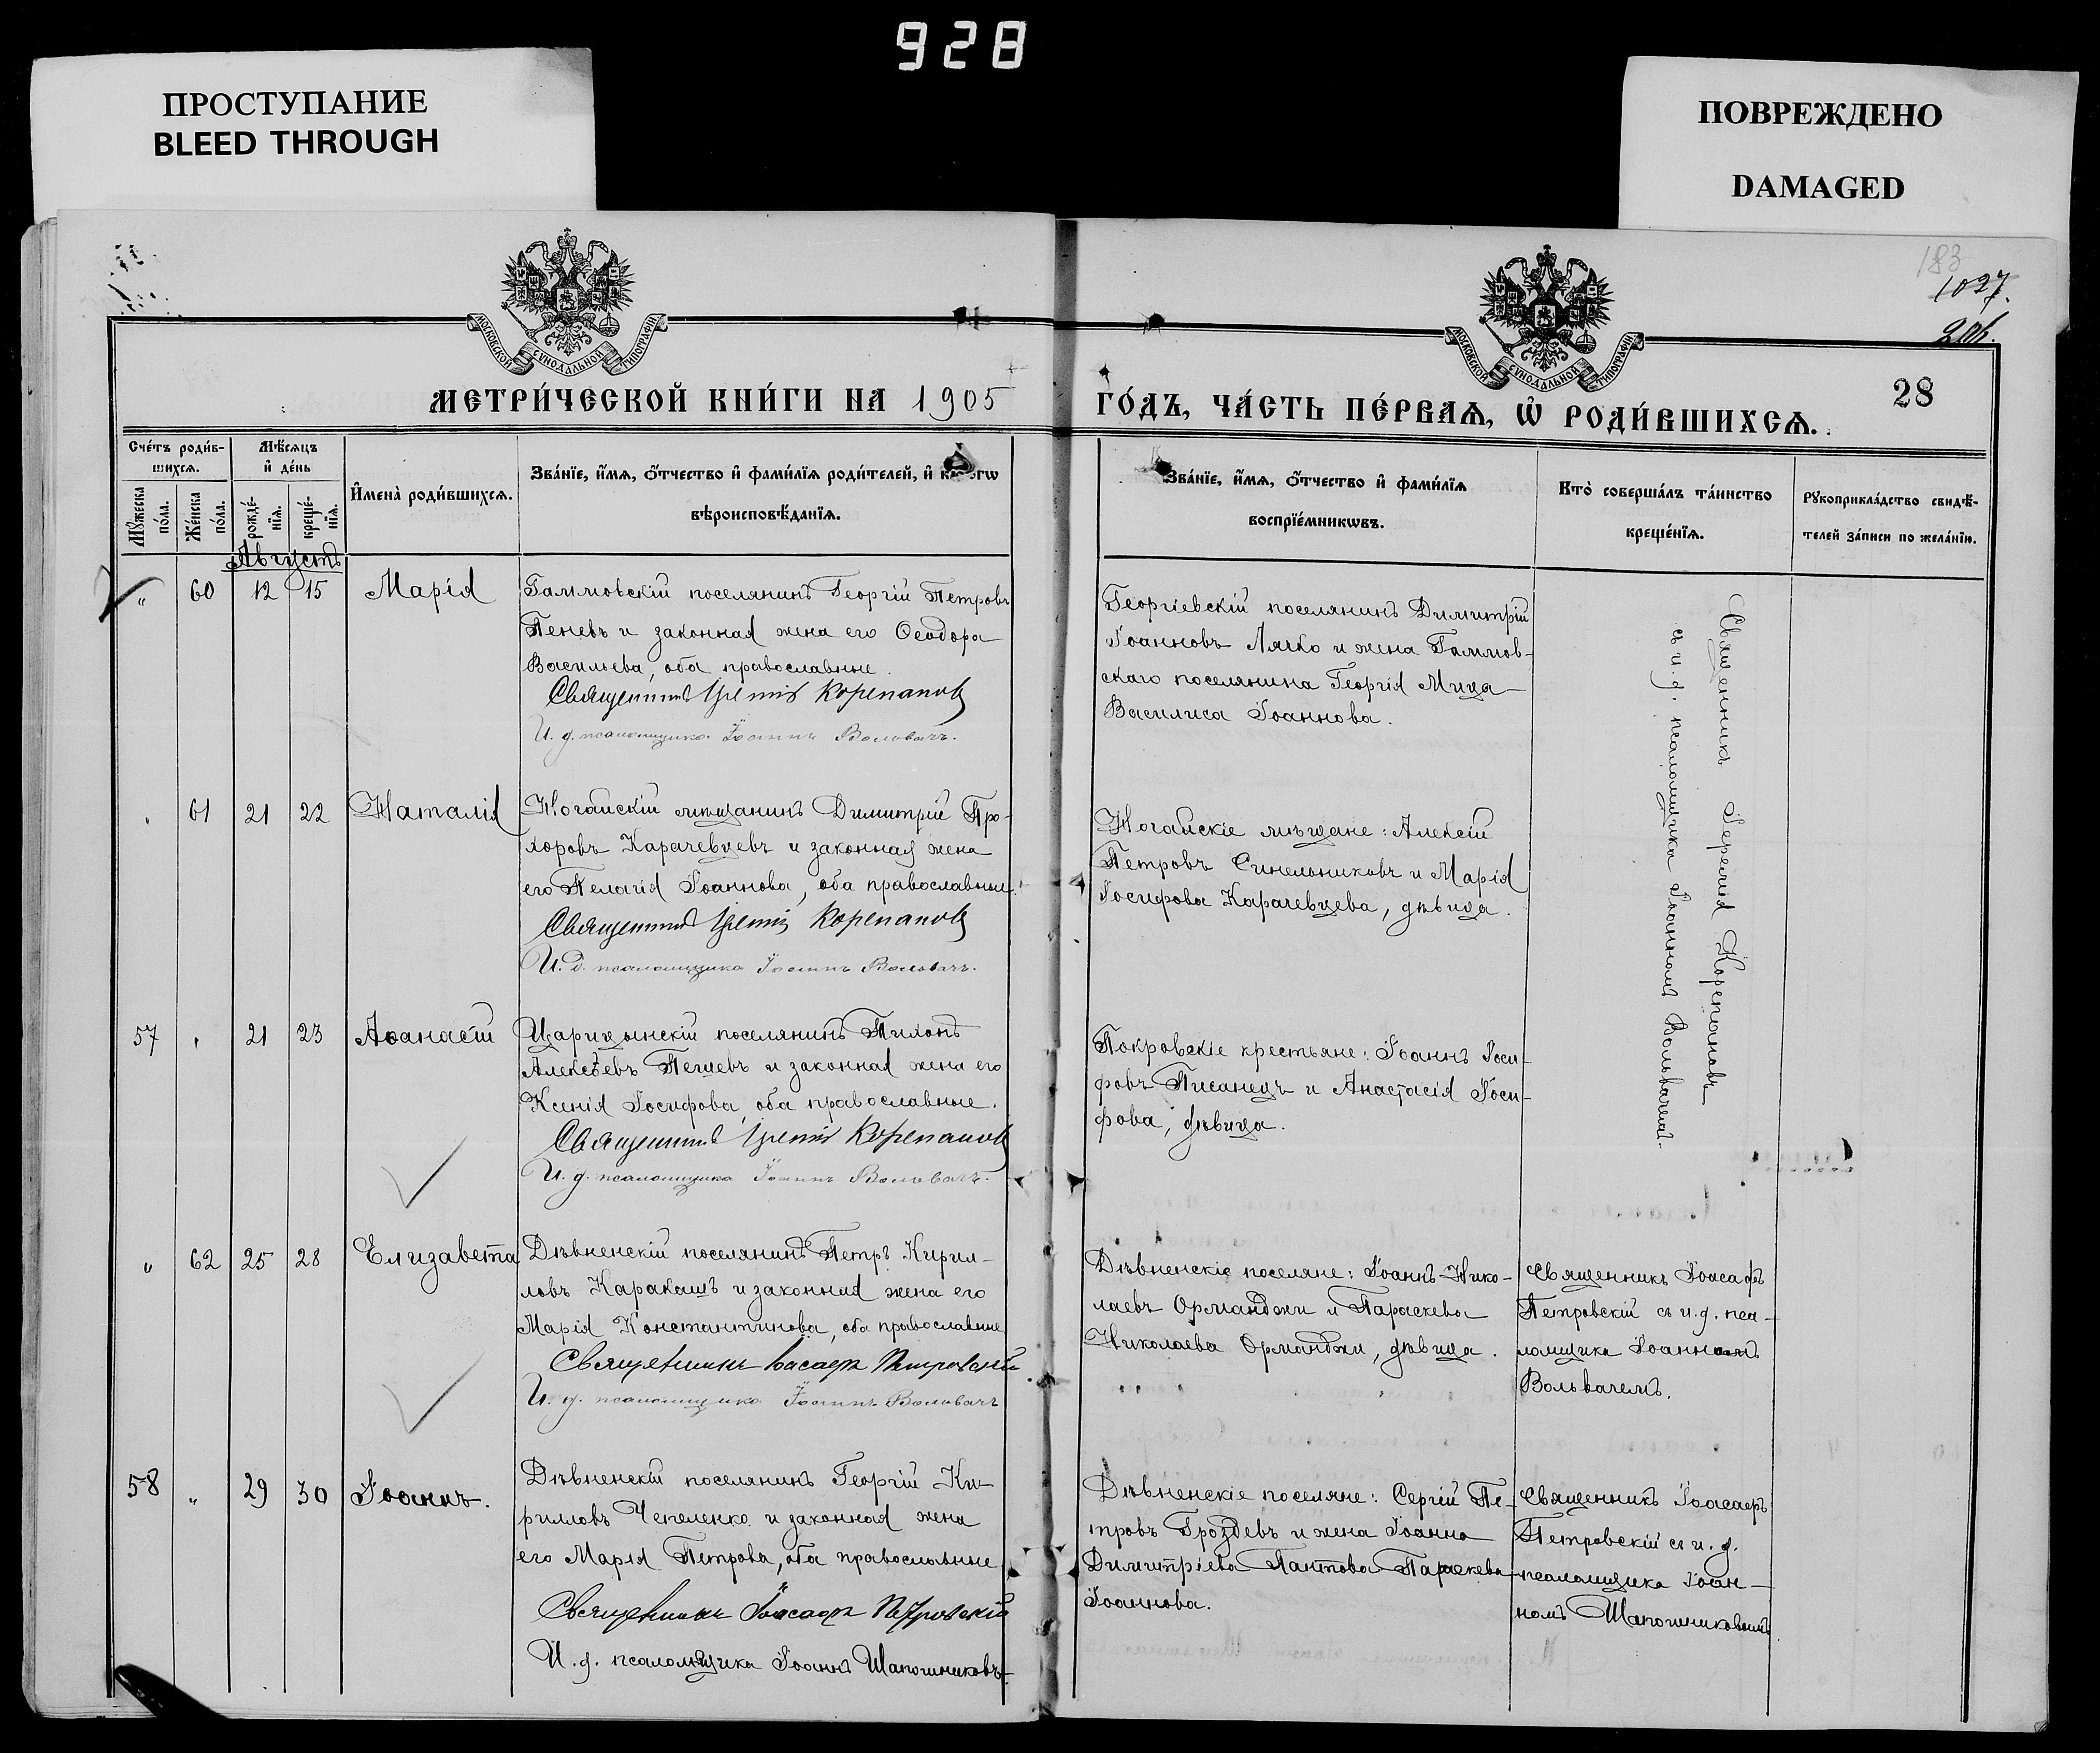 928
ПРОСТУПАНИЕ
BLEED THROUGH
ПОВРЕЖДЕНО
DAMAGED
183
1027.
МОСКОВСКОЙ СѴНОДАЛЬНОЙ ТИПОГРАФІИ
МОСКОВСКОЙ СѴНОДАЛЬНОЙ ТИПОГРАФІИ
МЕТРИ́ЧЕСКОЙ КНИ́ГИ НА 1905
ГО́ДЪ, ЧА́СТЬ ПЕ́РВАѦ, Ѡ҆ РОДИ́ВШИХСѦ.
28
Сче́тъ роди́в-
шихсѧ.
Мѣ́сѧцъ
и҆ де́нь
Мꙋ́жеска
по́ла.
Же́нска
по́ла.
рожде́-
нїѧ.
креще́-
нїѧ.
И҆мена̀ роди́вшихсѧ.
Зва́нїе, и҆́мѧ, ѻ҆́тчество и҆ фами́лїѧ роди́телей, и҆
вѣроисповѣ́данїѧ.
Зва́нїе, и҆́мѧ, ѻ҆́тчество и҆ фами́лїѧ
воспрїе́мникѡвъ.
Кто̀ соверша́лъ та́инство
креще́нїѧ.
Рꙋкоприкла́дство свидѣ́-
телей за́писи по жела́нїю.
Августъ
" 60 12 15 Марія
Гаммовскій поселянинъ Георгій Петровъ
Пеневъ и законная жена его Ѳеодора
Васильева, оба православные.
Священникъ Іеремія Корепановъ
И. д. псаломщика Іоаннъ Вольвачъ.
Георгіевскій поселянинъ Димитрій
Іоанновъ Лячко и жена Гаммов-
скаго поселянина Георгія Мица
Василиса Іоаннова.
Священникъ Іеремія Корепановъ
съ и. д. псаломщика Іоанномъ Вольвачемъ.
" 61 21 22 Наталія
Ногайскій мѣщанинъ Димитрій Про-
хоровъ Карачевцевъ и законная жена
его Пелагія Іоаннова, оба православные.
Священникъ Іеремія Корепановъ
И. д. псаломщика Іоаннъ Вольвачъ.
Ногайскіе мѣщане: Алексій
Петровъ Синельниковъ и Марія
Іосифова Карачевцева, дѣвица.
57 " 21 23 Аѳанасій
Царицынскій поселянинъ Тихонъ
Алексѣевъ Пешевъ и законная жена его
Ксенія Іосифова, оба православные.
Священникъ Іеремія Корепановъ
И. д. псаломщика Іоаннъ Вольвачъ.
Покровскіе крестьяне: Іоаннъ Іоси-
фовъ Писанецъ и Анастасія Іоси-
фова, дѣвица.
" 62 25 28 Елизавета
Дѣвненскій поселянинъ Петръ Кирил-
ловъ Каракашъ и законная жена его
Марія Константинова, оба православные
Священникъ Іоасафъ Петровскій
И. д. псаломщика Іоаннъ Вольвачъ
Дѣвненскіе поселяне: Іоаннъ Нико-
лаевъ Орманджи и Параскева
Николаева Орманджи, дѣвица.
Священникъ Іоасафъ
Петровскій съ и. д. пса-
ломщика Іоанномъ
Вольвачемъ.
58 " 29 30 Іоаннъ.
Дѣвненскій поселянинъ Георгій Ки-
рилловъ Чепеленко и законная жена
его Марія Петрова, оба православные
Священникъ Іоасафъ Петровскій
И. д. псаломщика Іоаннъ Шапошниковъ.
Дѣвненскіе поселяне: Сергій Пе-
тровъ Гроздевъ и жена Іоанна
Димитріева Пантова Параскева
Іоаннова.
Священникъ Іоасафъ
Петровскій съ и. д.
псаломщика Іоан-
номъ Шапошниковымъ.